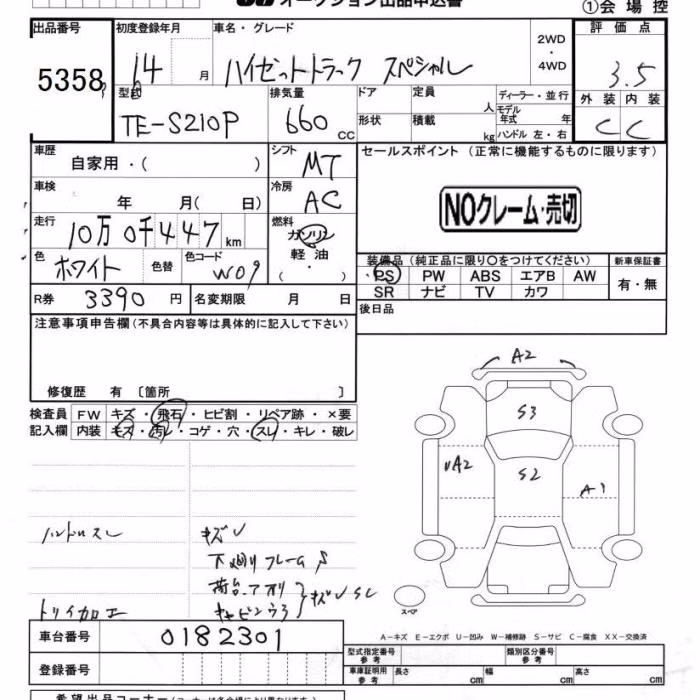 オークション出品申込書 ①会場控
出品番号 初度登録年月 車名・グレード 評価点
5358 14 月 ハイゼットトラック スペシャル 2WD・4WD 3.5
型式 排気量 ドア 定員 人 ディーラー・並行 外装 内装
TE-S210P 660 cc 形状 積載 kg モデル年式 年 ハンドル 左・右 C C
車歴 自家用・( ) シフト MT セールスポイント (正常に機能するものに限ります)
車検 年 月( 日) 冷房 AC NOクレーム・売切
走行 10万0千447km 燃料 ガソリン 軽油 ( ・ )
色 ホワイト 色替 色コード W09 装備品(純正品に限り○をつけてください) 新車保証書
PS PW ABS エアB AW 有・無
R券 3390円 名変期限 月 日 SR ナビ TV カワ
注意事項申告欄(不具合内容等は具体的に記入して下さい) 後日品
修復歴 有 〔箇所 〕
検査員 FW キズ・飛石・ヒビ割・リペア跡・×要
記入欄 内装 キズ・汚レ・コゲ・穴・スレ・キレ・破レ
A2
S3
A2 S2 A1
ハンドルスレ キズ
下廻りフレームS
荷台、アオリ
キャビンウラ キズ
スペア
A-キズ E-エクボ U-凹み W-補修跡 S-サビ C-腐食 XX-交換済
車台番号 0182301
登録番号 型式指定番号 参考 類別区分番号 参考
車庫証明用 参考 長さ cm 幅 cm 高さ cm
希望出品コーナー